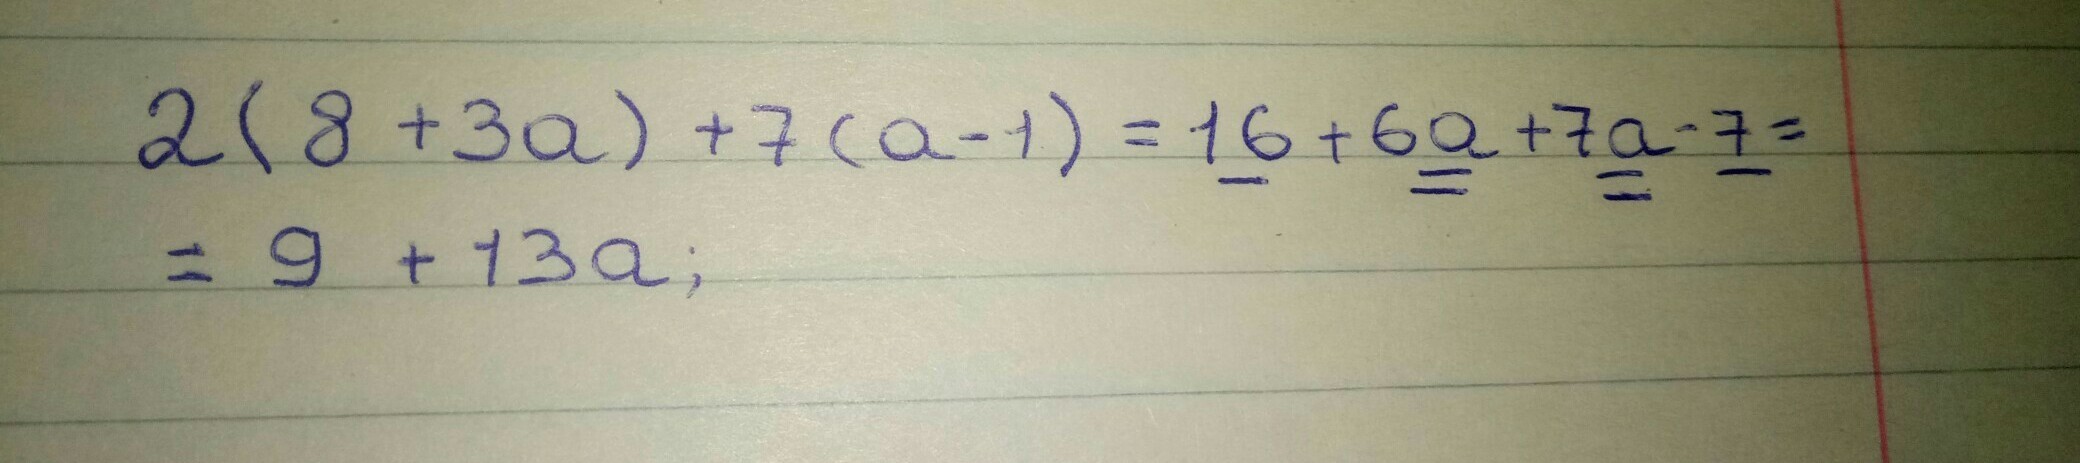 2(8+3a)+7(a-1)=16+6a+7a-7=
=9+13a;